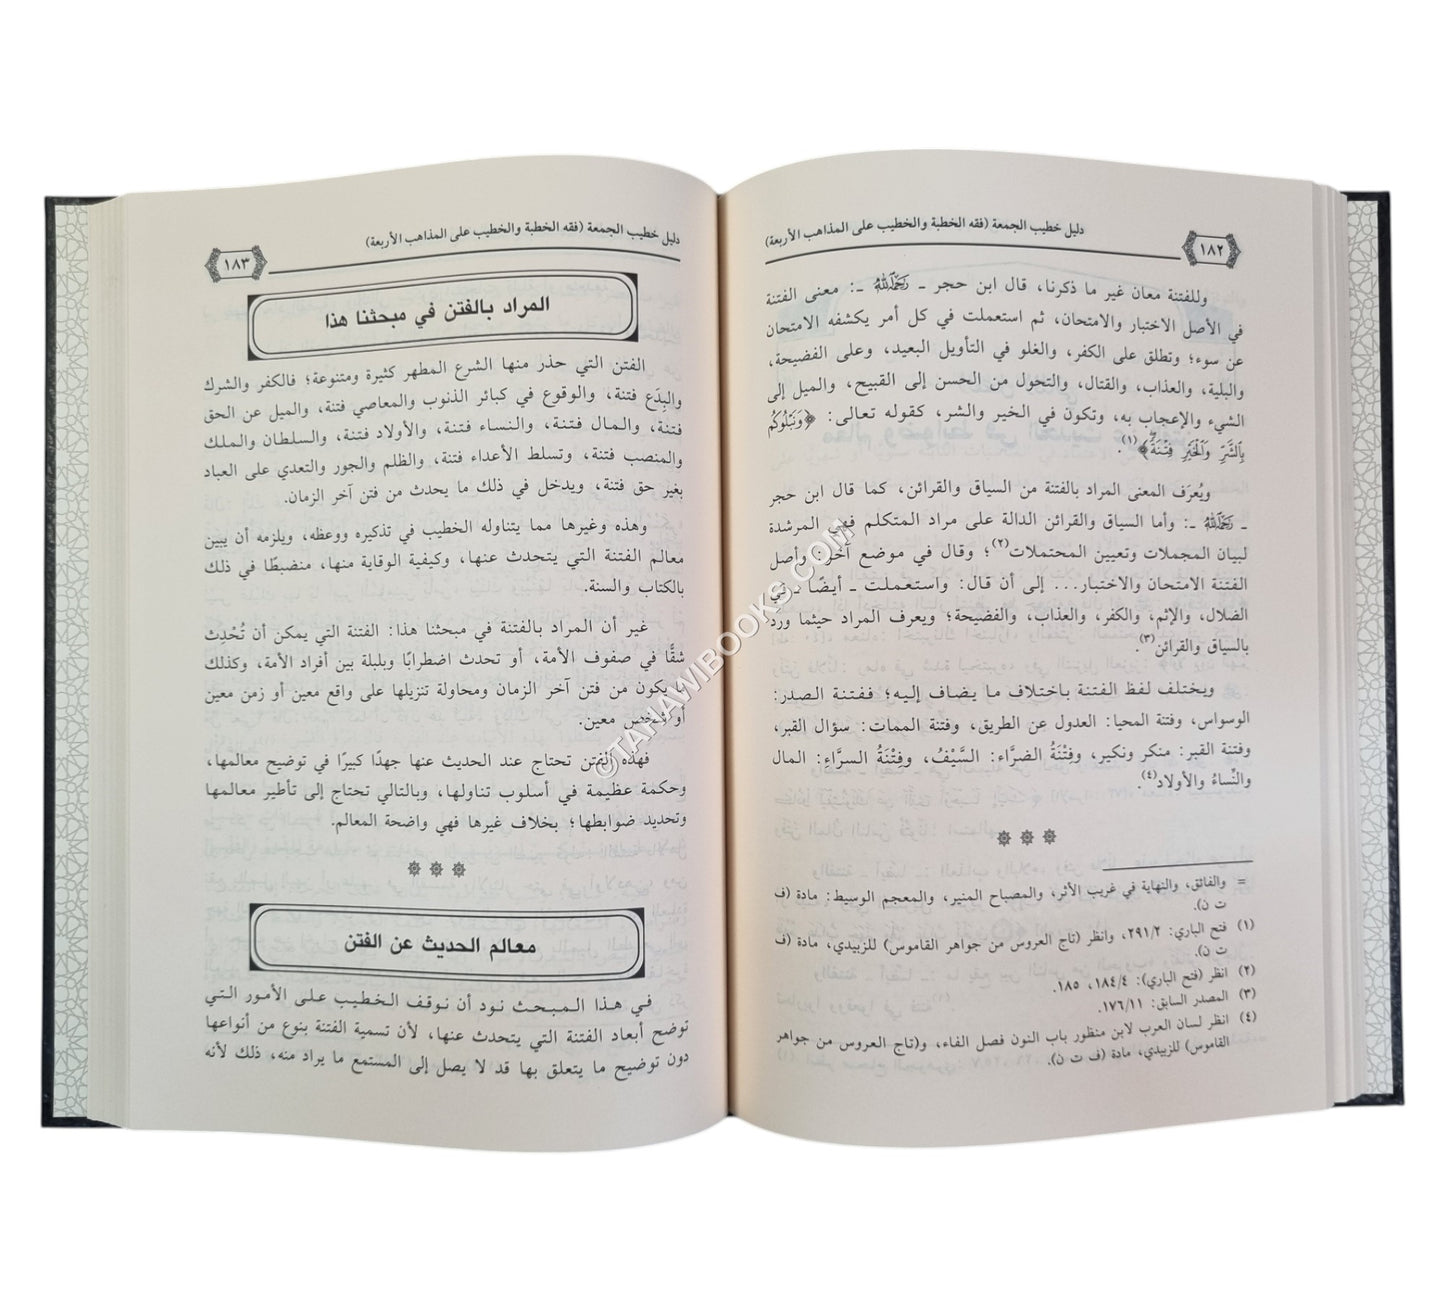 دليل خطيب الجمعة (فقه الخطبة والخطيب على المذاهب الأربعة)
١٨٢
وللفتنة معان غير ما ذكرنا، قال ابن حجر ـ رَحِمَهُ ٱللَّهُ ـ: معنى الفتنة
في الأصل الاختبار والامتحان، ثم استعملت في كل أمر يكشفه الامتحان
عن سوء؛ وتطلق على الكفر، والغلو في التأويل البعيد، وعلى الفضيحة،
والبلية، والعذاب، والقتال، والتحول من الحسن إلى القبيح، والميل إلى
الشيء والإعجاب به، وتكون في الخير والشر، كقوله تعالى: ﴿وَنَبْلُوكُم
بِٱلشَّرِّ وَٱلْخَيْرِ فِتْنَةً﴾(١).
ويُعرَف المعنى المراد بالفتنة من السياق والقرائن، كما قال ابن حجر
ـ رَحِمَهُ ٱللَّهُ ـ: وأما السياق والقرائن الدالة على مراد المتكلم فهي المرشدة
لبيان المجملات وتعيين المحتملات(٢)؛ وقال في موضع آخر: وأصل
الفتنة الامتحان والاختبار... إلى أن قال: واستعملت ـ أيضًا ـ في
الضلال، والإثم، والكفر، والعذاب، والفضيحة؛ ويعرف المراد حيثما ورد
بالسياق والقرائن(٣).
ويختلف لفظ الفتنة باختلاف ما يضاف إليه؛ ففتنة الصدر:
الوسواس، وفتنة المحيا: العدول عن الطريق، وفتنة الممات: سؤال القبر،
وفتنة القبر: منكر ونكير، وفِتْنَةُ الضرَّاء: السَّيْفُ، وفِتْنَةُ السراءِ: المال
والنِّساءُ والأولاد(٤).
= والفائق، والنهاية في غريب الأثر، والمصباح المنير، والمعجم الوسيط: مادة (ف
ت ن).
(١) فتح الباري: ٢٩١/٢، وانظر (تاج العروس من جواهر القاموس) للزبيدي، مادة (ف
ت ن).
(٢) انظر (فتح الباري): ١٨٤/٤، ١٨٥.
(٣) المصدر السابق: ١٧٦/١١.
(٤) انظر لسان العرب لابن منظور باب النون فصل الفاء، و(تاج العروس من جواهر
القاموس) للزبيدي، مادة (ف ت ن).
دليل خطيب الجمعة (فقه الخطبة والخطيب على المذاهب الأربعة)
١٨٣
المراد بالفتن في مبحثنا هذا
الفتن التي حذر منها الشرع المطهر كثيرة ومتنوعة؛ فالكفر والشرك
والبِدَع فتنة، والوقوع في كبائر الذنوب والمعاصي فتنة، والميل عن الحق
فتنة، والمال فتنة، والنساء فتنة، والأولاد فتنة، والسلطان والملك
والمنصب فتنة، وتسلط الأعداء فتنة، والظلم والجور والتعدي على العباد
بغير حق فتنة، ويدخل في ذلك ما يحدث من فتن آخر الزمان.
وهذه وغيرها مما يتناوله الخطيب في تذكيره ووعظه، ويلزمه أن يبين
معالم الفتنة التي يتحدث عنها، وكيفية الوقاية منها، منضبطًا في ذلك
بالكتاب والسنة.
غير أن المراد بالفتنة في مبحثنا هذا: الفتنة التي يمكن أن تُحْدِث
شقًّا في صفوف الأمة، أو تحدث اضطرابًا وبلبلة بين أفراد الأمة، وكذلك
ما يكون من فتن آخر الزمان ومحاولة تنزيلها على واقع معين أو زمن معين
أو شخص معين.
فهذه الفتن تحتاج عند الحديث عنها جهدًا كبيرًا في توضيح معالمها،
وحكمة عظيمة في أسلوب تناولها، وبالتالي تحتاج إلى تأطير معالمها
وتحديد ضوابطها؛ بخلاف غيرها فهي واضحة المعالم.
معالم الحديث عن الفتن
في هذا المبحث نود أن نوقف الخطيب على الأمور التي
توضح أبعاد الفتنة التي يتحدث عنها، لأن تسمية الفتنة بنوع من أنواعها
دون توضيح ما يتعلق بها قد لا يصل إلى المستمع ما يراد منه، ذلك لأنه
© TAHAWIBOOKS.COM